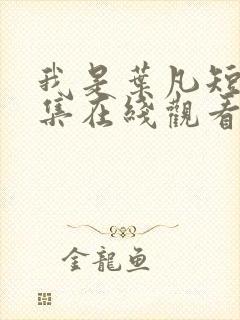 我是葉凡短
集在綫觀看
金龍魚